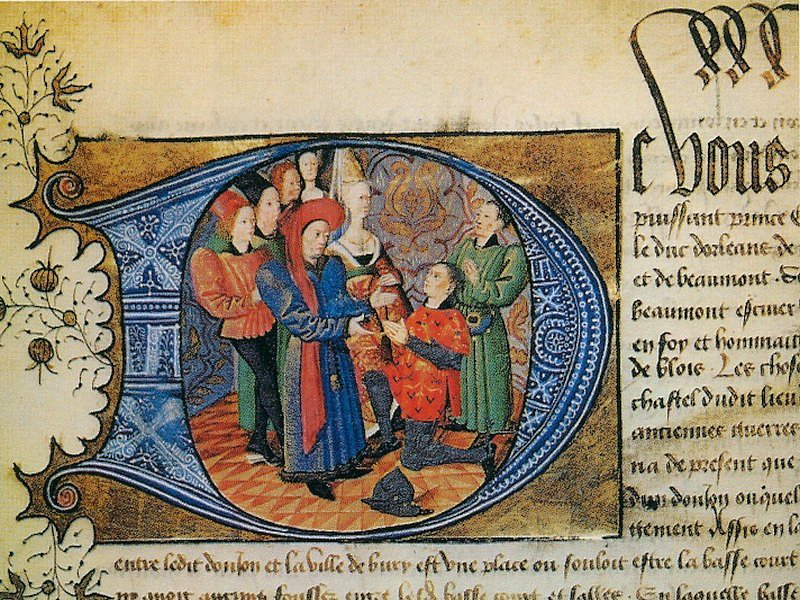 De vous
puissant prince
le duc dorleans de
et de beaumont. S
beaumont escuier
en foy et hommai
de blois. Les chos
chastel dudit lieu
anciennes guerres
na de present que
dun donJon ouquel
ttement Assis en la
entre ledit donJon et la ville de bury est vne place ou souloit estre la basse court
auoit aucuns foussez entre basse court et salles. En laquelle basse